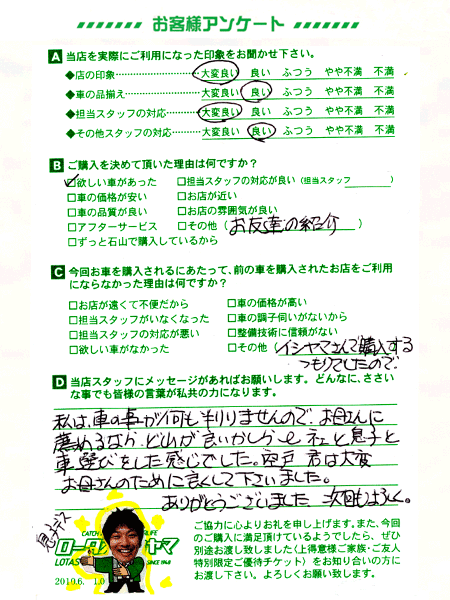 お客様アンケート
A 当店を実際にご利用になった印象をお聞かせ下さい。
◆店の印象 大変良い 良い ふつう やや不満 不満
◆車の品揃え 大変良い 良い ふつう やや不満 不満
◆担当スタッフの対応 大変良い 良い ふつう やや不満 不満
◆その他スタッフの対応 大変良い 良い ふつう やや不満 不満
B ご購入を決めて頂いた理由は何ですか？
☑欲しい車があった □担当スタッフの対応が良い（担当スタッフ　　）
□車の価格が安い □お店が近い
□車の品質が良い □お店の雰囲気が良い
□アフターサービス □その他（お友達の紹介）
□ずっと石山で購入しているから
C 今回お車を購入されるにあたって、前の車を購入されたお店をご利用
にならなかった理由は何ですか？
□お店が遠くて不便だから □車の価格が高い
□担当スタッフがいなくなった □車の調子伺いがないから
□担当スタッフの対応が悪い □整備技術に信頼がない
□欲しい車がなかった □その他（イシヤマさんで購入する
つもりでしたので。
D 当店スタッフにメッセージがあればお願いします。どんなに、ささい
な事でも皆様の言葉が私共の力になります。
私は、車の事が何も判りませんので、お母さんに
薦めるなら、どれが良いかしら と 息子と
車選びをした感じでした。 君は大変
お母さんのために良くして下さいました。
ありがとうございました 次回もよろしく。
ご協力に心よりお礼を申し上げます。また、今回
のご購入に満足頂けているようでしたら、ぜひ
別途お渡し致しました〈上得意様ご家族・ご友人
特別限定ご優待チケット〉をお知り合いの方に
お渡し下さい。よろしくお願い致します。
CATCH LIFE
ロータス ヤマ
LOTAS SINCE 1968
2010.6. 1.0